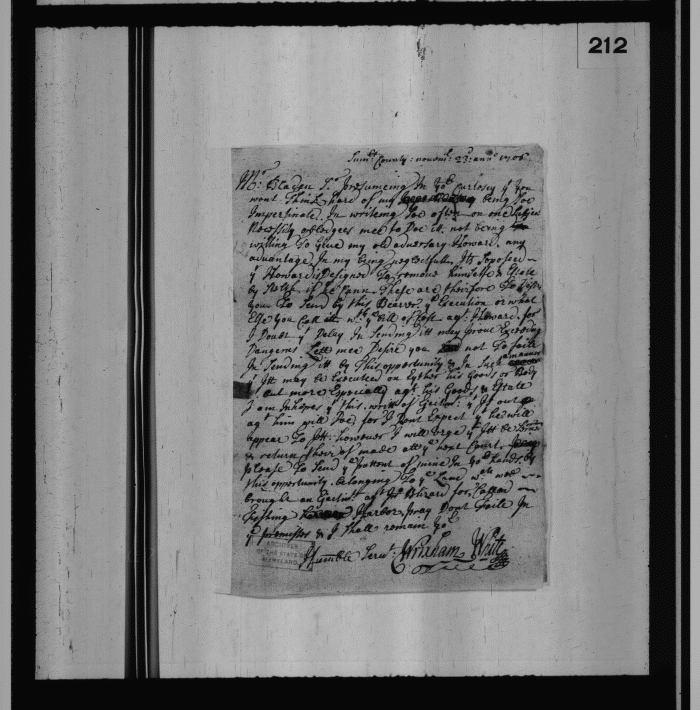 212
Sum:tt County: novem:r 23: anno 1706
Mr: Bladen Sr. presumeing In yor Curtosey yt You
wont Think hard of my being Soe
Impersinate. In writeing Soe often on one Subject
Nesossity obleegees mee to Doe itt. not being
willing To Give my old adversary Howard. any
advantage In my being neglectfull, Its Soposed
yt Howard is Designed To remove himselfe & Estate
by Stelth if he Cann. These are therefore To desire
you To Send by this Bearer ye Execution or what
Else you Call itt wth ye Bill of Cost agt: Howard. for
I Doubt ye Delay In Sending itt may prove Exceeding
Dangerus. Lett mee Desire you not To faile
In Sending itt by This opportunity & In Such a manner
yt Itt may be Executed on Eyther his Goods or Body
but more Especially agt his Goods & Estate
I am Inhopes yt this writt of Gectmt: yt If out
agt him will Doe, for I Dont Expect yt he will
appear To Itt: however I will urge yt Itt be
& return thereof made att ye next Court.
please To Send ye pattent of mine In yor hands by
this opportunity. belonging To ye Land wch
brought an Ejectmt agt Jno Buzard for, Called
Harbor, pray Dont faile In
ye promisses & I Shall remain Yor
Humble Servt: Winham White
ARCHIVES
OF THE STATE OF
MARYLAND